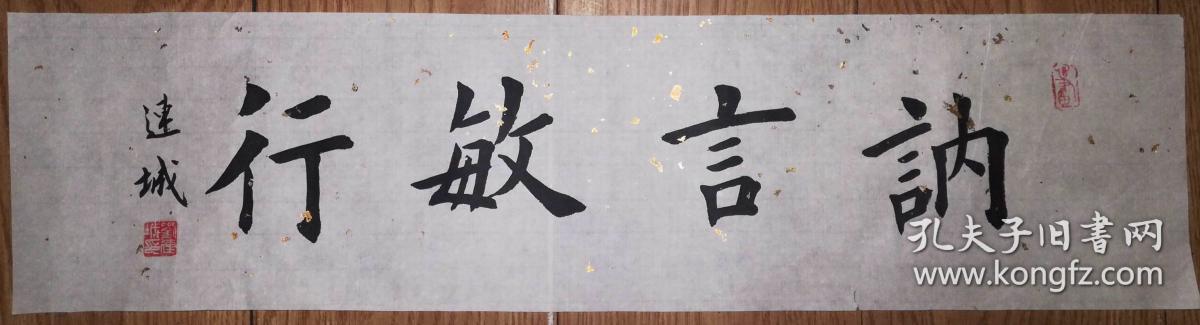 訥言敏行
連城
孔夫子旧書网
www.kongfz.com